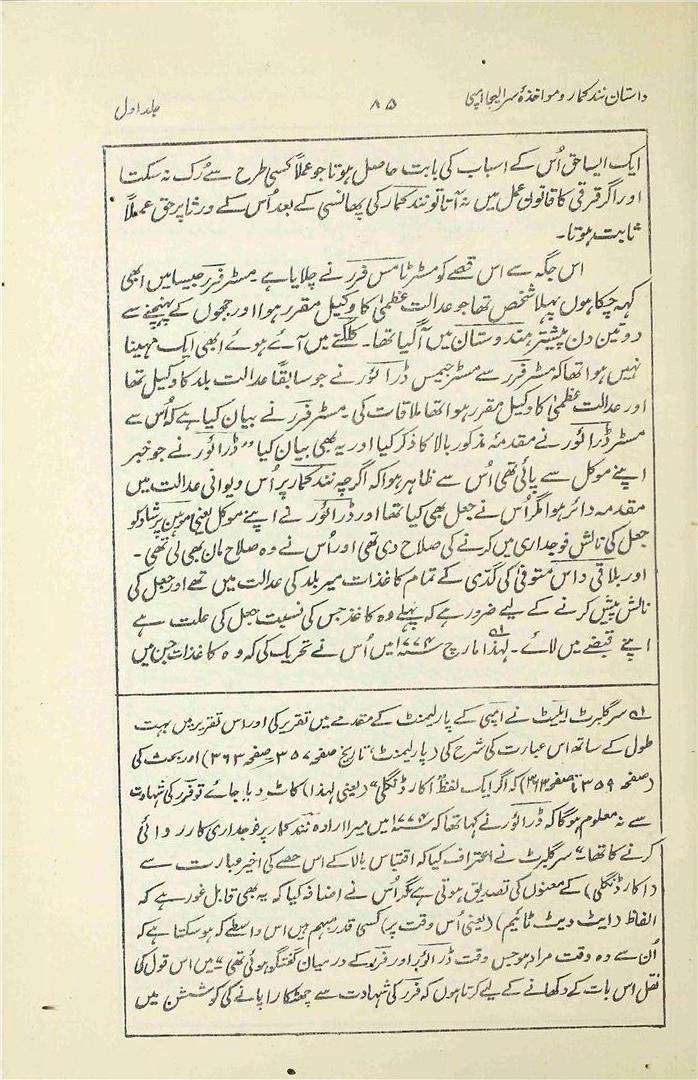 داستان نند کمار و مواخذۂ سر الیجا امپی
۸۵
جلد اول
ایک ایسا حق اُس کے اسباب کی بابت حاصل ہوتا جو عملاً کسی طرح سے رُک نہ سکتا
اور اگر قرقی کا قانون عمل میں نہ آتا تو نند کمار کی پھانسی کے بعد اُس کے ورثا پر حق عملاً
ثابت ہوتا۔
اس جگہ سے اس قصے کو مسٹر ٹامس فرر نے چلایا ہے۔ مسٹر فرر جیسا میں ابھی
کہہ چکا ہوں پہلا شخص تھا جو عدالت عظمیٰ کا وکیل مقرر ہوا اور ججوں کے پہنچنے سے
دو تین دن پیشتر ہندوستان میں آگیا تھا۔ کلکتے میں آئے ہوئے ابھی ایک مہینا
نہیں ہوا تھا کہ مسٹر فرر سے مسٹر جیمس ڈرائور نے جو سابقاً عدالت بلد کا وکیل تھا
اور عدالت عظمیٰ کا وکیل مقرر ہوا تھا ملاقات کی۔ مسٹر فرر نے بیان کیا ہے کہ اُس سے
مسٹر ڈرائور نے مقدمۂ مذکور بالا کا ذکر کیا اور یہ بھی بیان کیا "ڈرائور نے جو خبر
اپنے موکل سے پائی تھی اُس سے ظاہر ہوا کہ اگرچہ نند کمار پر اُس دیوانی عدالت میں
مقدمہ دائر ہوا مگر اُس نے جعل بھی کیا تھا اور ڈرائور نے اپنے موکل یعنی موہن پرشاد کو
جعل کی نالش فوجداری میں کرنے کی صلاح دی تھی اور اُس نے وہ صلاح مان بھی لی تھی۔
اور بلاقی داس متوفی کی گدّی کے تمام کاغذات میر بلد کی عدالت میں تھے اور جعل کی
نالش پیش کرنے کے لیے ضرور ہے کہ پہلے وہ کاغذ جس کی نسبت جعل کی علت ہے
اپنے قبضے میں لائے۔ لہذا ؎۱ مارچ ۱۷۷۴ء میں اُس نے تحریک کی کہ وہ کاغذات جن میں
؎۱ سر گلبرٹ ایلیٹ نے امپی کے پارلیمنٹ کے مقدمے میں تقریر کی اور اس تقریر میں بہت
طول کے ساتھ اس عبارت کی شرح کی (پارلیمنٹ تاریخ صفحہ ۳۵۷۔ صفحہ ۳۶۳) اور بحث کی
(صفحہ ۳۵۹ تا صفحہ ۳۶۳) کہ اگر ایک لفظ "اکارڈنگلی" (یعنی لہذا) کاٹ دیا جائے تو فرر کی شہادت
سے نہ معلوم ہوگا کہ ڈرائور نے کہا تھا کہ ۱۷۷۴ء میں میرا ارادہ نند کمار پر فوجداری کارروائی
کرنے کا تھا۔" سر گلبرٹ نے اعتراف کیا کہ اقتباس بالا کے اس حصے کی اخیر عبارت سے
(اکارڈنگلی) کے معنوں کی تصدیق ہوتی ہے مگر اُس نے اضافہ کیا کہ یہ بھی قابل غور ہے کہ
الفاظ (ایٹ دیٹ ٹائیم) (یعنی اُس وقت پر) کسی قدر مبہم ہیں اس واسطے کہ ہو سکتا ہے کہ
اُن سے وہ وقت مراد ہو جس وقت ڈرائور اور فرر کے درمیان گفتگو ہوئی تھی" میں اس قول کی
نقل اس بات کے دکھانے کے لیے کرتا ہوں کہ فرر کی شہادت سے چھٹکارا پانے کی کوشش میں